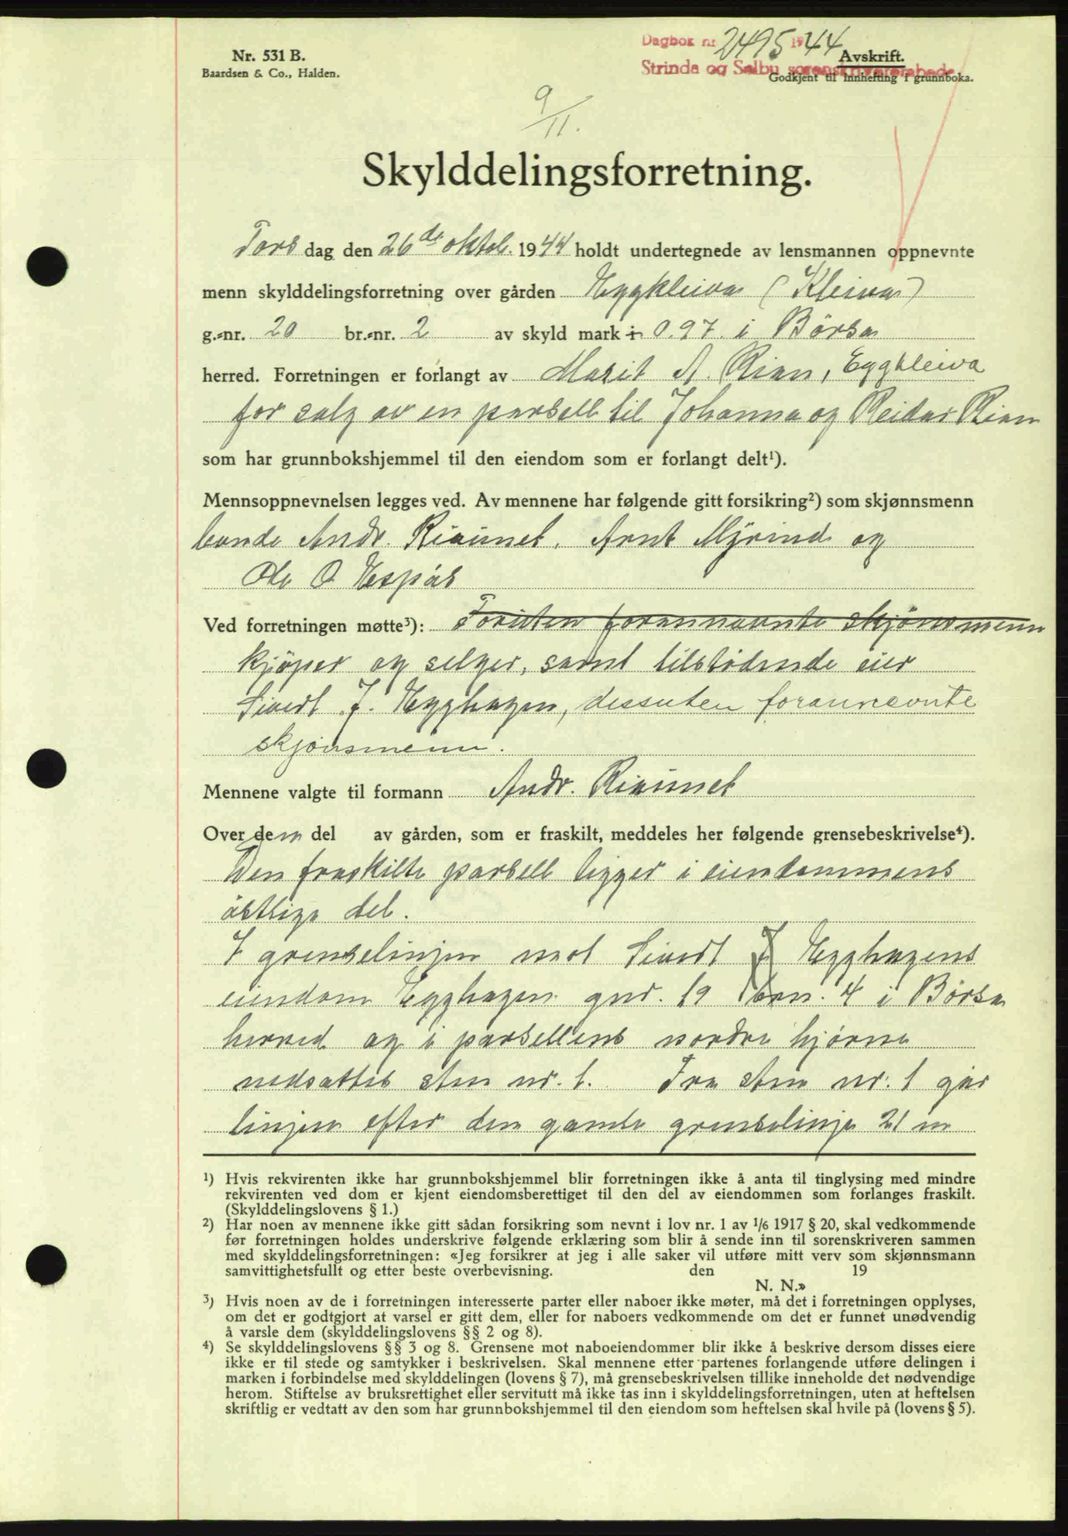 Nr. 531 B.
Baardsen & Co., Halden.
Dagbok nr. 2495 1944
Strinda og Selbu sorenskriverembede
Avskrift.
Godkjent til innhefting i grunnboka.
9/11.
Skylddelingsforretning.
Torsdag den 26de oktob. 1944 holdt undertegnede av lensmannen oppnevnte
menn skylddelingsforretning over gården Eggkleiva (Kleiva)
g.-nr. 20 br.-nr. 2 av skyld mark 0.97 i Børsa
herred. Forretningen er forlangt av Marit A. Rian, Eggkleiva
for salg av en parsell til Johanna og Reidar Rian
som har grunnbokshjemmel til den eiendom som er forlangt delt¹).
Mennsoppnevnelsen legges ved. Av mennene har følgende gitt forsikring²) som skjønnsmenn
Andr. Arnt Myrind og
Ole O Espås
Ved forretningen møtte³): Foruten forannevnte skjønsmenn
kjöper og selger, samt tilstødende eier
Sivert J. Egghagen, dessuten forannevnte
skjønsmenn.
Mennene valgte til formann Andr.
Over den del av gården, som er fraskilt, meddeles her følgende grensebeskrivelse⁴).
Den fraskilte parsell ligger i eiendommens
östlige del.
I grenselinjen mot Sivert J Egghagens
eiendom Egghagen gnr. 19 brn. 4 i Børsa
herred og i parsellens nordre hjørne
nedsattes sten nr. 1. Fra sten nr. 1 går
linjen efter den gamle grenselinje 21 m
¹) Hvis rekvirenten ikke har grunnbokshjemmel blir forretningen ikke å anta til tinglysing med mindre
rekvirenten ved dom er kjent eiendomsberettiget til den del av eiendommen som forlanges fraskilt.
(Skylddelingslovens § 1.)
²) Har noen av mennene ikke gitt sådan forsikring som nevnt i lov nr. 1 av 1/6 1917 § 20, skal vedkommende
før forretningen holdes underskrive følgende erklæring som blir å sende inn til sorenskriveren sammen
med skylddelingsforretningen: «Jeg forsikrer at jeg i alle saker vil utføre mitt verv som skjønnsmann
samvittighetsfullt og etter beste overbevisning. den 19
N. N.»
³) Hvis noen av de i forretningen interesserte parter eller naboer ikke møter, må det i forretningen opplyses,
om det er godtgjort at varsel er gitt dem, eller for naboers vedkommende om det er funnet unødvendig
å varsle dem (skylddelingslovens §§ 2 og 8).
⁴) Se skylddelingslovens §§ 3 og 8. Grensene mot naboeiendommer blir ikke å beskrive dersom disses eiere
ikke er til stede og samtykker i beskrivelsen. Skal mennene etter partenes forlangende utføre delingen i
marken i forbindelse med skylddelingen (lovens § 7), må grensebeskrivelsen tillike inneholde det nødvendige
herom. Stiftelse av bruksrettighet eller servitutt må ikke tas inn i skylddelingsforretningen, uten at heftelsen
skriftlig er vedtatt av den som har grunnbokshjemmel til den eiendom som heftelsen skal hvile på (lovens § 5).